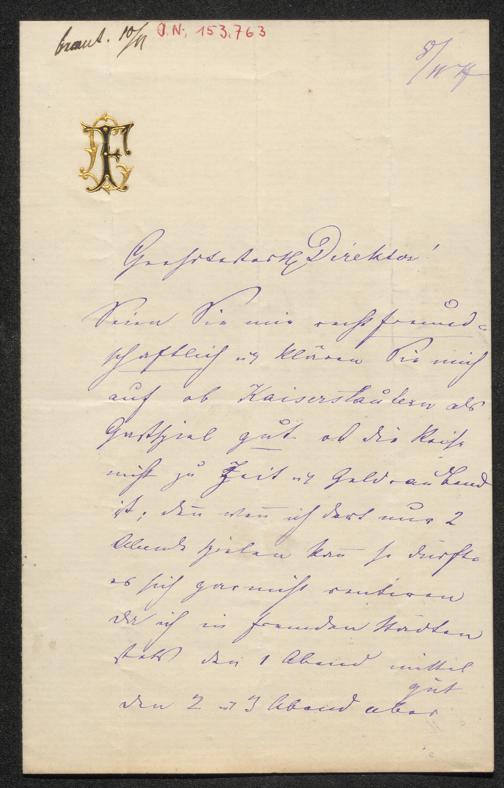 beant. 10/11 O.N. 153.763
8/11 77
F
Geehrtester H Direktor!
Seien Sie mir recht freund-
schaftlich u klären Sie mich
auf ob Kaiserslautern als
Gastspiel gut ob die Reise
nicht zu Zeit u Geldraubend
ist; den wen ich dort nur 2
Abende spielen kan so dürfte
es sich garnicht rentiren
da ich in fremden Städten
stets den 1 Abend mittel
gut
den 2 u 3 Abend aber